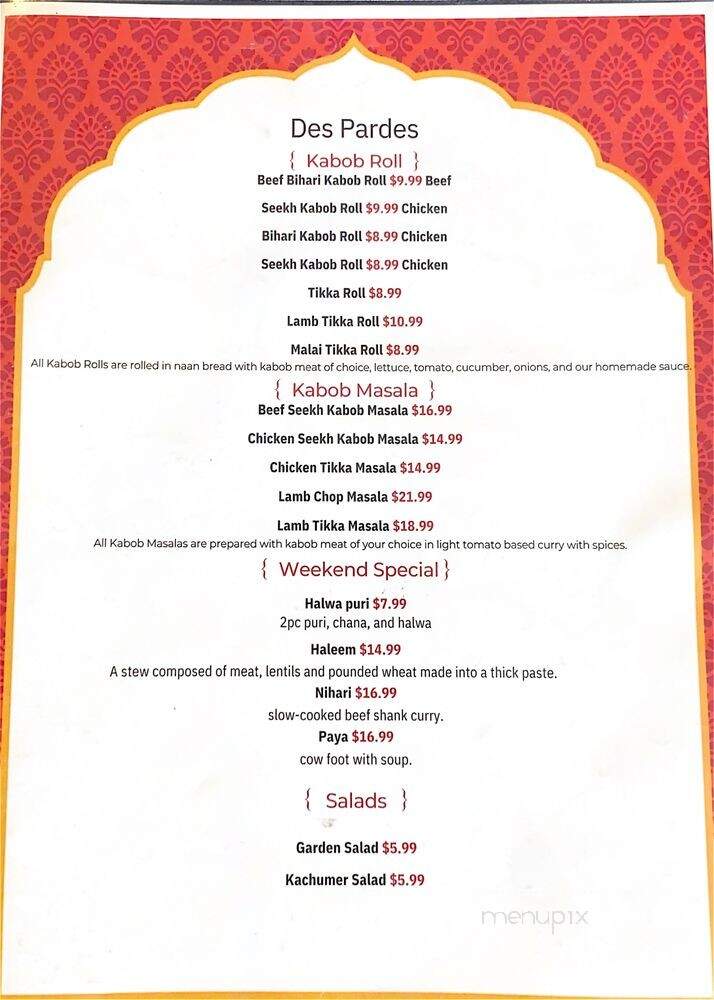 Des Pardes
{ Kabob Roll }
Beef Bihari Kabob Roll $9.99 Beef
Seekh Kabob Roll $9.99 Chicken
Bihari Kabob Roll $8.99 Chicken
Seekh Kabob Roll $8.99 Chicken
Tikka Roll $8.99
Lamb Tikka Roll $10.99
Malai Tikka Roll $8.99
All Kabob Rolls are rolled in naan bread with kabob meat of choice, lettuce, tomato, cucumber, onions, and our homemade sauce.
{ Kabob Masala }
Beef Seekh Kabob Masala $16.99
Chicken Seekh Kabob Masala $14.99
Chicken Tikka Masala $14.99
Lamb Chop Masala $21.99
Lamb Tikka Masala $18.99
All Kabob Masalas are prepared with kabob meat of your choice in light tomato based curry with spices.
{ Weekend Special }
Halwa puri $7.99
2pc puri, chana, and halwa
Haleem $14.99
A stew composed of meat, lentils and pounded wheat made into a thick paste.
Nihari $16.99
slow-cooked beef shank curry.
Paya $16.99
cow foot with soup.
{ Salads }
Garden Salad $5.99
Kachumer Salad $5.99
menupix